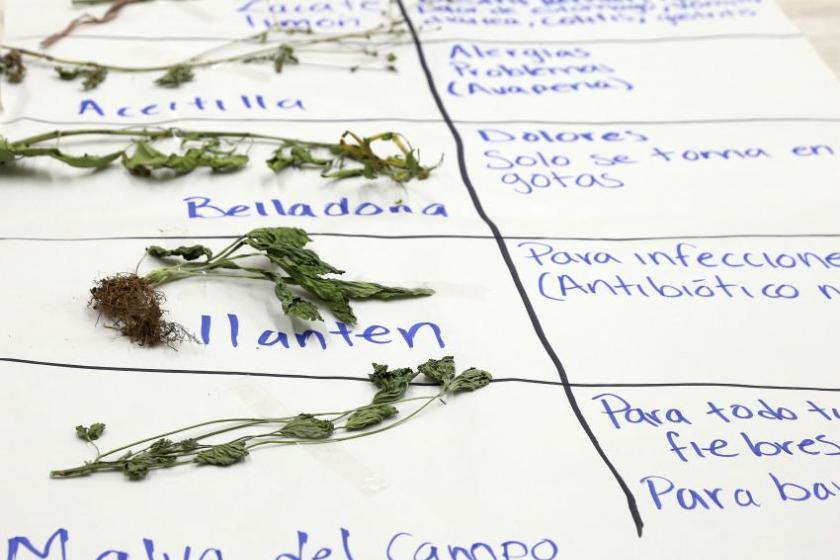 Zacate
limon
diarrea, colitis, gastritis
Aceitilla
Alergias
Problemas
Belladona
Dolores
Solo se toma en
gotas
llanten
Para infeccione
(Antibiótico n
Malva del Campo
Para todo ti
fiebres
Para ba